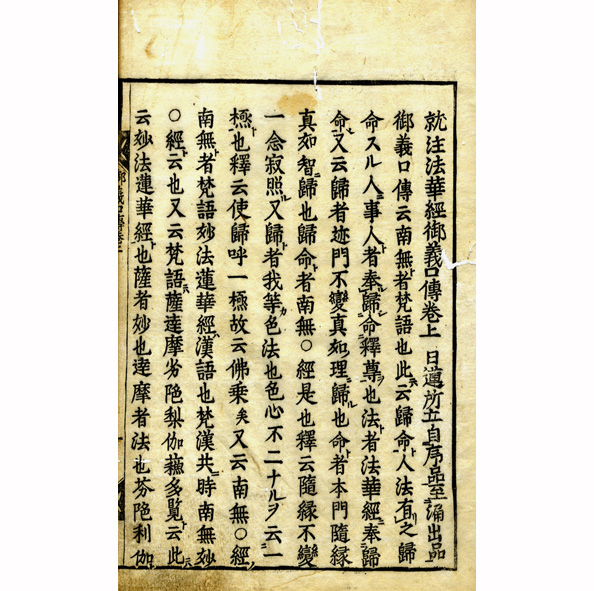 就注法華經御義口傳卷上 日蓮所立自序品至涌出品
御義口傳云南無者梵語也此云歸命人法有之歸
命スル人ニ事人者奉歸命釋尊也法者法華經奉歸
命又云歸者迹門不變真如理歸也命者本門隨縁
真如智歸也歸命者南無〇經是也釋云隨縁不變
一念寂照又歸者我等色法也色心不二ナルヲ云一
極也釋云使歸呼一極故云佛乘矣又云南無〇經
南無者梵語妙法蓮華經漢語也梵漢共時南無妙
〇經云也又云梵語薩達摩芬陀梨伽蘓多覧云此
云妙法蓮華經也薩者妙也達摩者法也芬陀利伽
御義口傳卷上